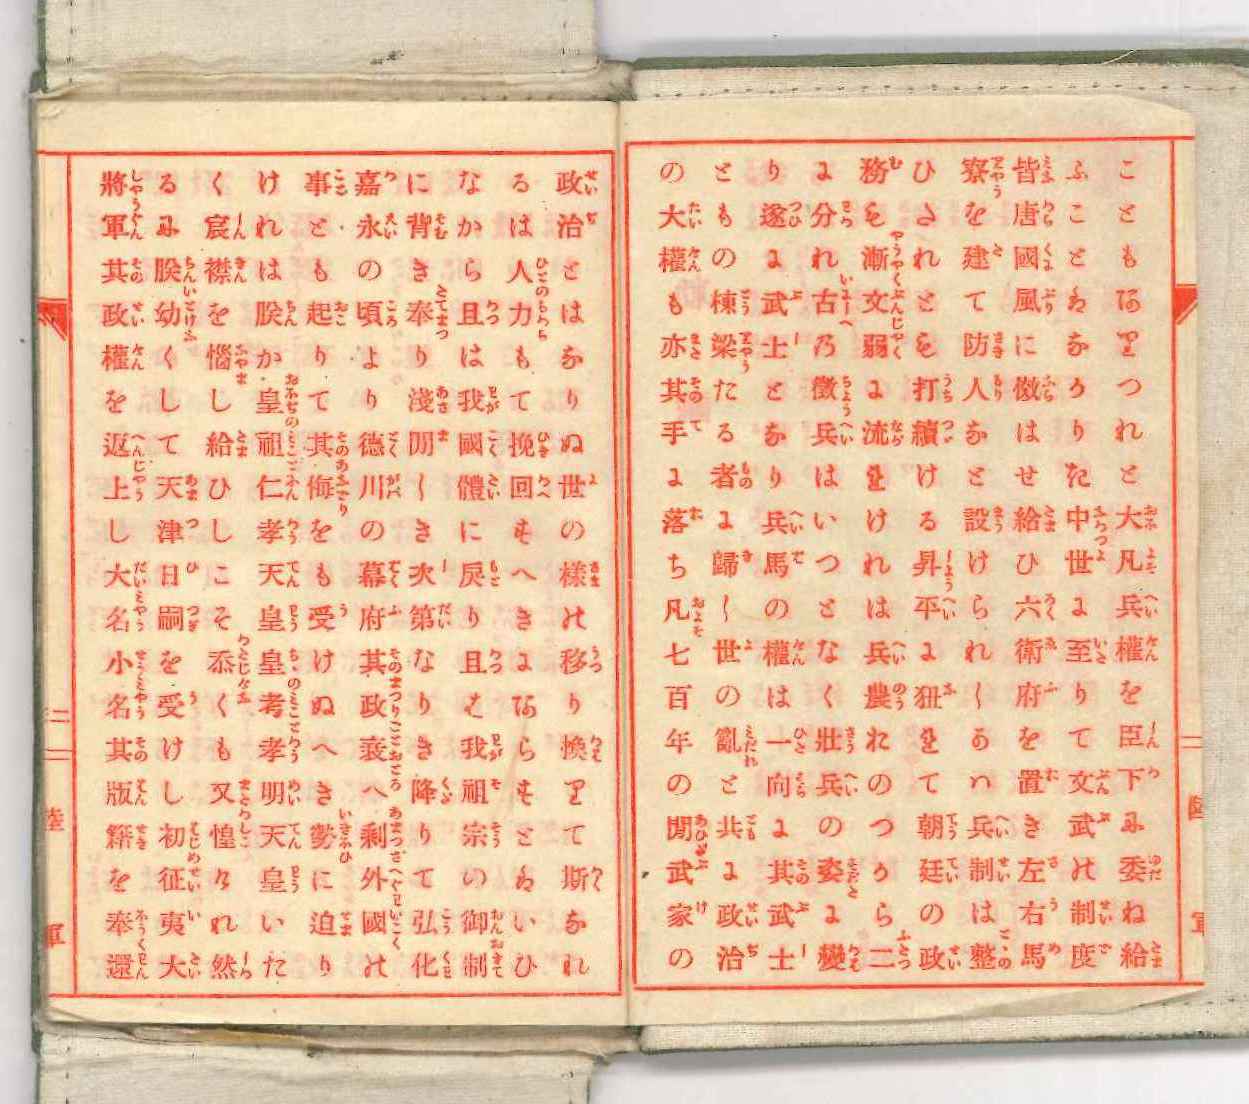 こともありつれと大凡兵權を臣下に委ね給
ふことはなかりき中世に至りて文武の制度
皆唐國風に傚はせ給ひ六衛府を置き左右馬
寮を建て防人なと設けられしかは兵制は整
ひたれとも打續ける昇平に狃れて朝廷の政
務も漸文弱に流れけれは兵農おのつから二
に分れ古の徵兵はいつとなく壯兵の姿に變
り遂に武士となり兵馬の權は一向に其武士
ともの棟梁たる者に歸し世の亂と共に政治
の大權も亦其手に落ち凡七百年の間武家の
政治とはなりぬ世の樣の移り換りて斯なれ
るは人力もて挽回すへきにあらすとはいひ
なから且は我國體に戾り且は我祖宗の御制
に背き奉り淺間しき次第なりき降りて弘化
嘉永の頃より德川の幕府其政衰へ剩外國の
事とも起りて其侮をも受けぬへき勢に迫り
けれは朕か皇祖仁孝天皇皇考孝明天皇いた
く宸襟を惱し給ひしこそ忝くも又惶けれ然
るに朕幼くして天津日嗣を受けし初征夷大
將軍其政權を返上し大名小名其版籍を奉還
陸軍